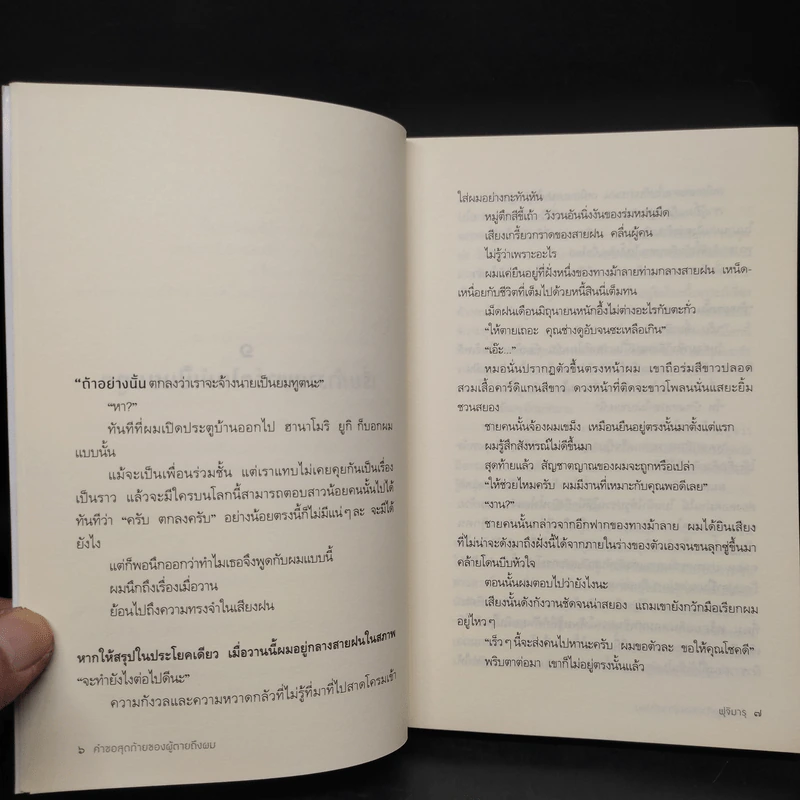 "ถ้าอย่างนั้น ตกลงว่าเราจะจ้างนายเป็นยมทูตนะ"
"หา?"
ทันทีที่ผมเปิดประตูบ้านออกไป ฮานาโมริ ยูกิ ก็บอกผม
แบบนั้น
แม้จะเป็นเพื่อนร่วมชั้น แต่เราแทบไม่เคยคุยกันเป็นเรื่อง
เป็นราว แล้วจะมีใครบนโลกนี้สามารถตอบสาวน้อยคนนั้นไปได้
ทันทีว่า "ครับ ตกลงครับ" อย่างน้อยตรงนี้ก็ไม่มีแน่ๆ ละ จะมีได้
ยังไง
แต่ก็พอนึกออกว่าทำไมเธอจึงพูดกับผมแบบนี้
ผมนึกถึงเรื่องเมื่อวาน
ย้อนไปถึงความทรงจำในเสียงฝน
หากให้สรุปในประโยคเดียว เมื่อวานนี้ผมอยู่กลางสายฝนในสภาพ
"จะทำยังไงต่อไปดีนะ"
ความกังวลและความหวาดกลัวที่ไม่รู้ที่มาที่ไปสาดโครมเข้า
๖ คำขอสุดท้ายของผู้ตายถึงผม
ใส่ผมอย่างกะทันหัน
หมู่ตึกสีขี้เถ้า วังวนอันนิ่งงันของร่มหม่นมืด
เสียงเกรี้ยวกราดของสายฝน คลื่นผู้คน
ไม่รู้ว่าเพราะอะไร
ผมแค่ยืนอยู่ที่ฝั่งหนึ่งของทางม้าลายท่ามกลางสายฝน เหน็ด-
เหนื่อยกับชีวิตที่เต็มไปด้วยหนี้สินนี่เต็มทน
เม็ดฝนเดือนมิถุนายนหนักอึ้งไม่ต่างอะไรกับตะกั่ว
"ให้ตายเถอะ คุณช่างดูอับจนซะเหลือเกิน"
"เอ๊ะ..."
หมอนั่นปรากฏตัวขึ้นตรงหน้าผม เขาถือร่มสีขาวปลอด
สวมเสื้อคาร์ดิแกนสีขาว ดวงหน้าที่ติดจะขาวโพลนนั่นแสยะยิ้ม
ชวนสยอง
ชายคนนั้นจ้องผมเขม็ง เหมือนยืนอยู่ตรงนั้นมาตั้งแต่แรก
ผมรู้สึกสังหรณ์ไม่ดีขึ้นมา
สุดท้ายแล้ว สัญชาตญาณของผมจะถูกหรือเปล่า
"ให้ช่วยไหมครับ ผมมีงานที่เหมาะกับคุณพอดีเลย"
"งาน?"
ชายคนนั้นกล่าวจากอีกฟากของทางม้าลาย ผมได้ยินเสียง
ที่ไม่น่าจะดังมาถึงฝั่งนี้ได้จากภายในร่างของตัวเองจนขนลุกซู่ขึ้นมา
คล้ายโดนบีบหัวใจ
ตอนนั้นผมตอบไปว่ายังไงนะ
เสียงนั้นดังกังวานชัดจนน่าสยอง แถมเขายังกวักมือเรียกผม
อยู่ไหวๆ
"เร็วๆ นี้จะส่งคนไปหานะครับ ผมขอตัวละ ขอให้คุณโชคดี"
พริบตาต่อมา เขาก็ไม่อยู่ตรงนั้นแล้ว
ฟุจิมารุ ๗